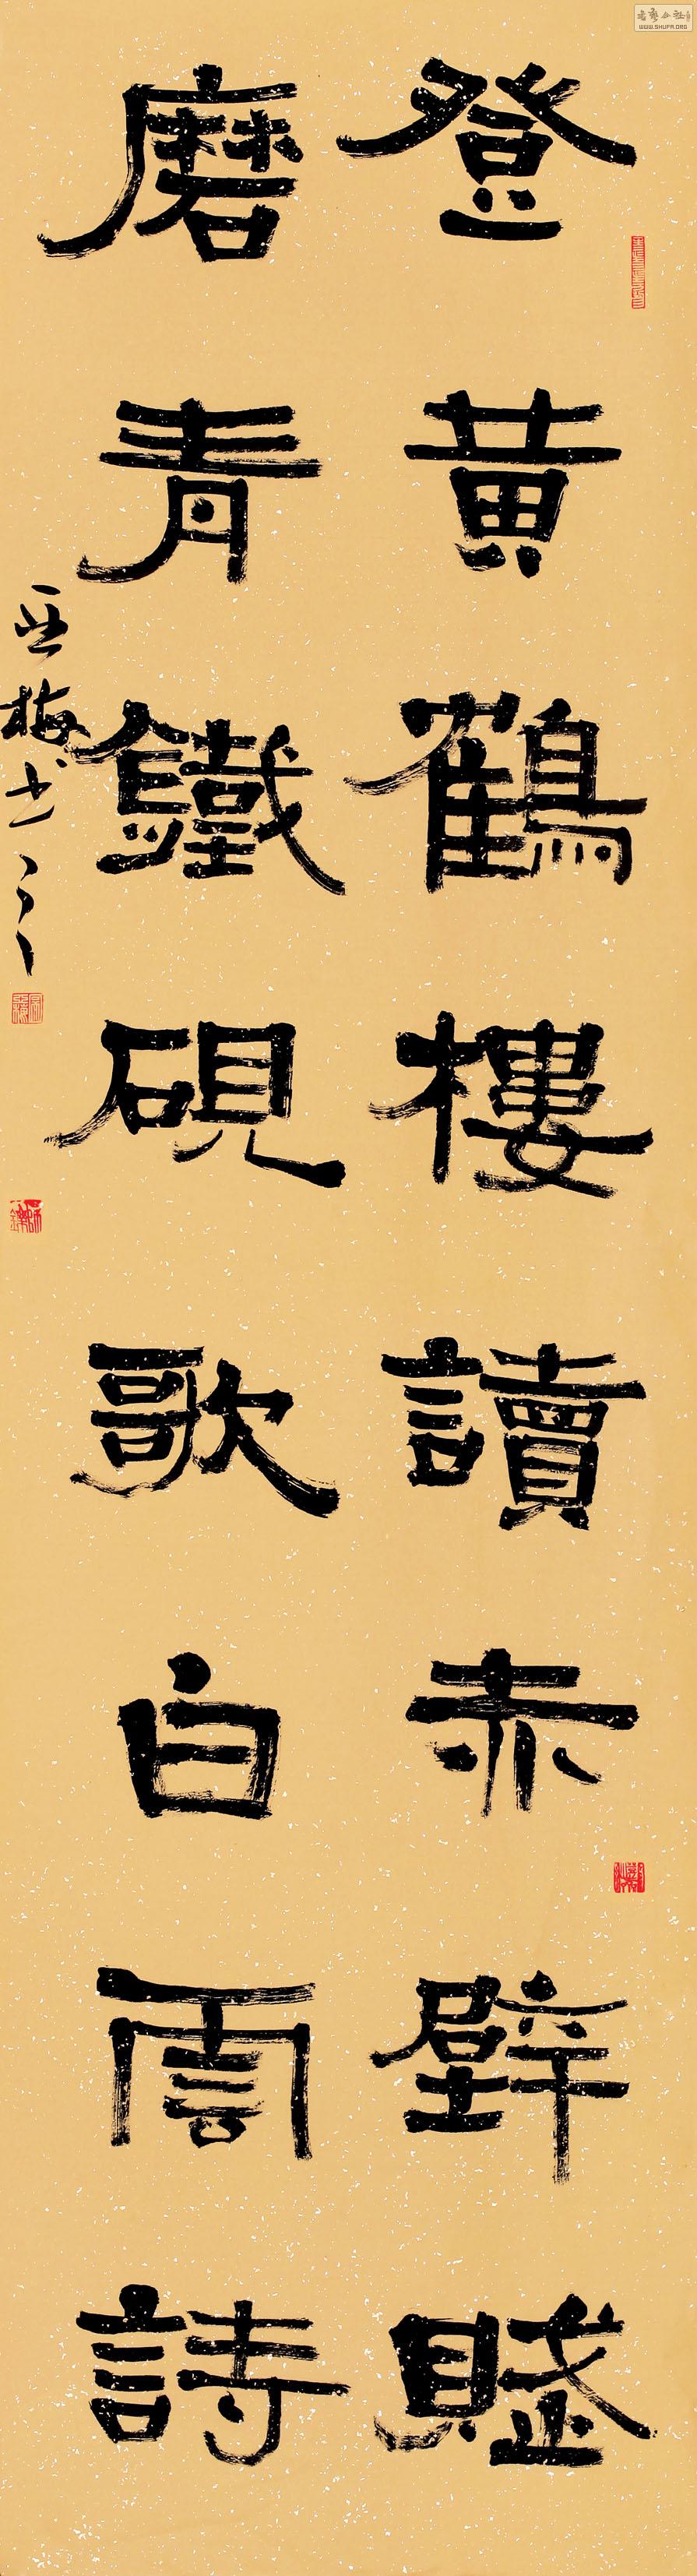 登黃鶴樓讀赤壁賦
磨青鐵硯歌白雲詩
亞梅書
WWW.SHUFA.ORG